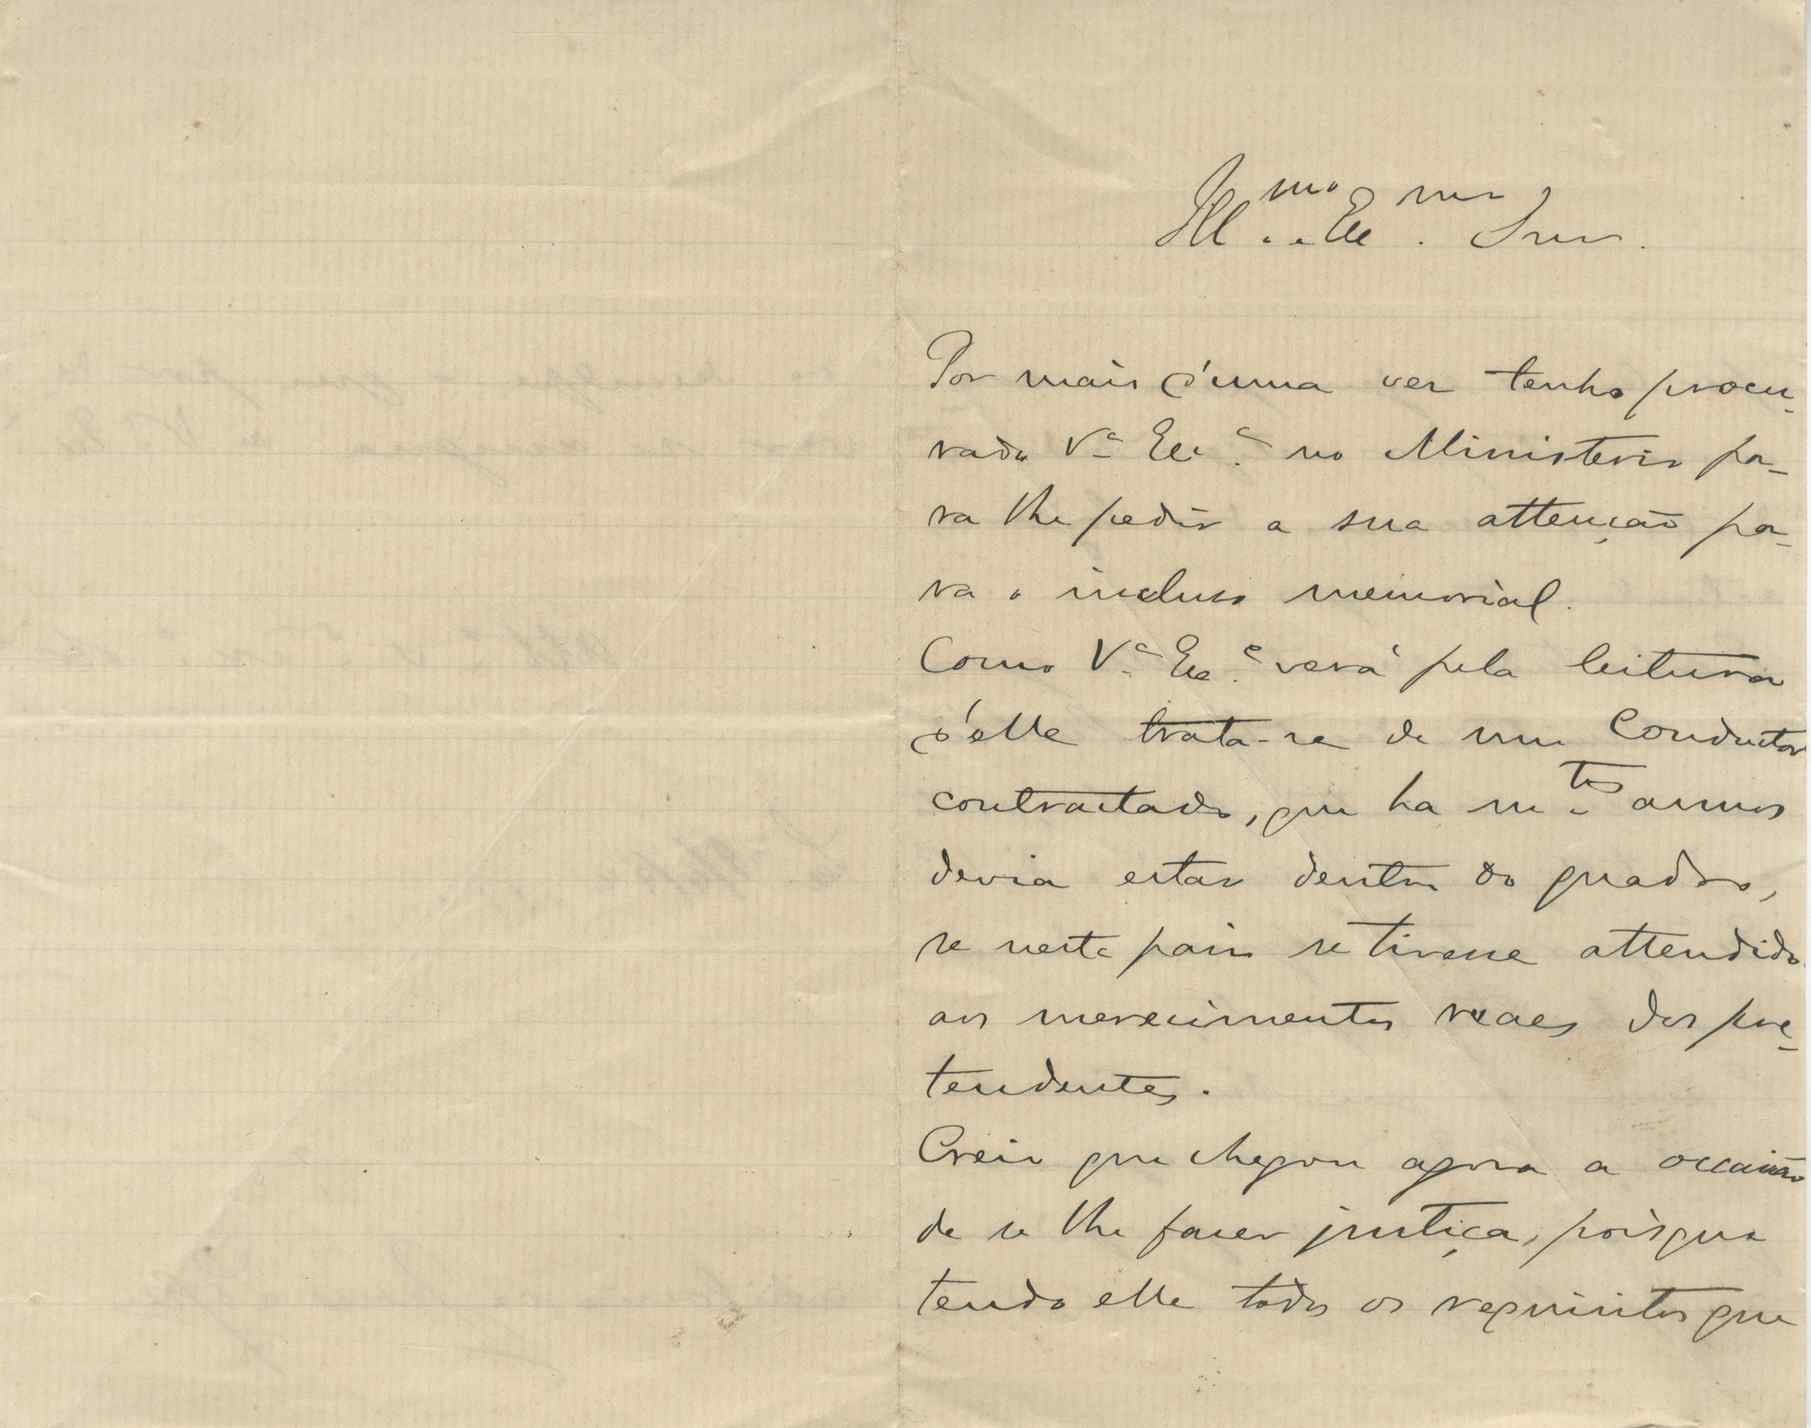 Ill.mo e Exc.mo Snr.
Por mais d'uma vez tenho procu-
rado V.a Exc.a no Ministerio pa-
ra lhe pedir a sua attenção pa-
ra o incluso memorial.
Como V.a Exc.a verá pela leitura
d'elle trata-se de um Conductor
contractado, que ha m.tos annos
devia estar dentro do quadro,
se neste paiz se tivesse attendido
aos merecimentos reaes dos pre-
tendentes.
Creio que chegou agora a occasião
de se lhe fazer justiça, poisque
tendo elle todos os requisitos que